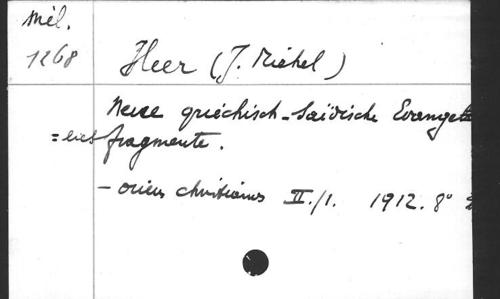 Mél.
1268
Heer (J. Michel)
Neue griechisch-saïdische Evangeli
= enfragmente.
- oriens christianus II./1. 1912. 8°